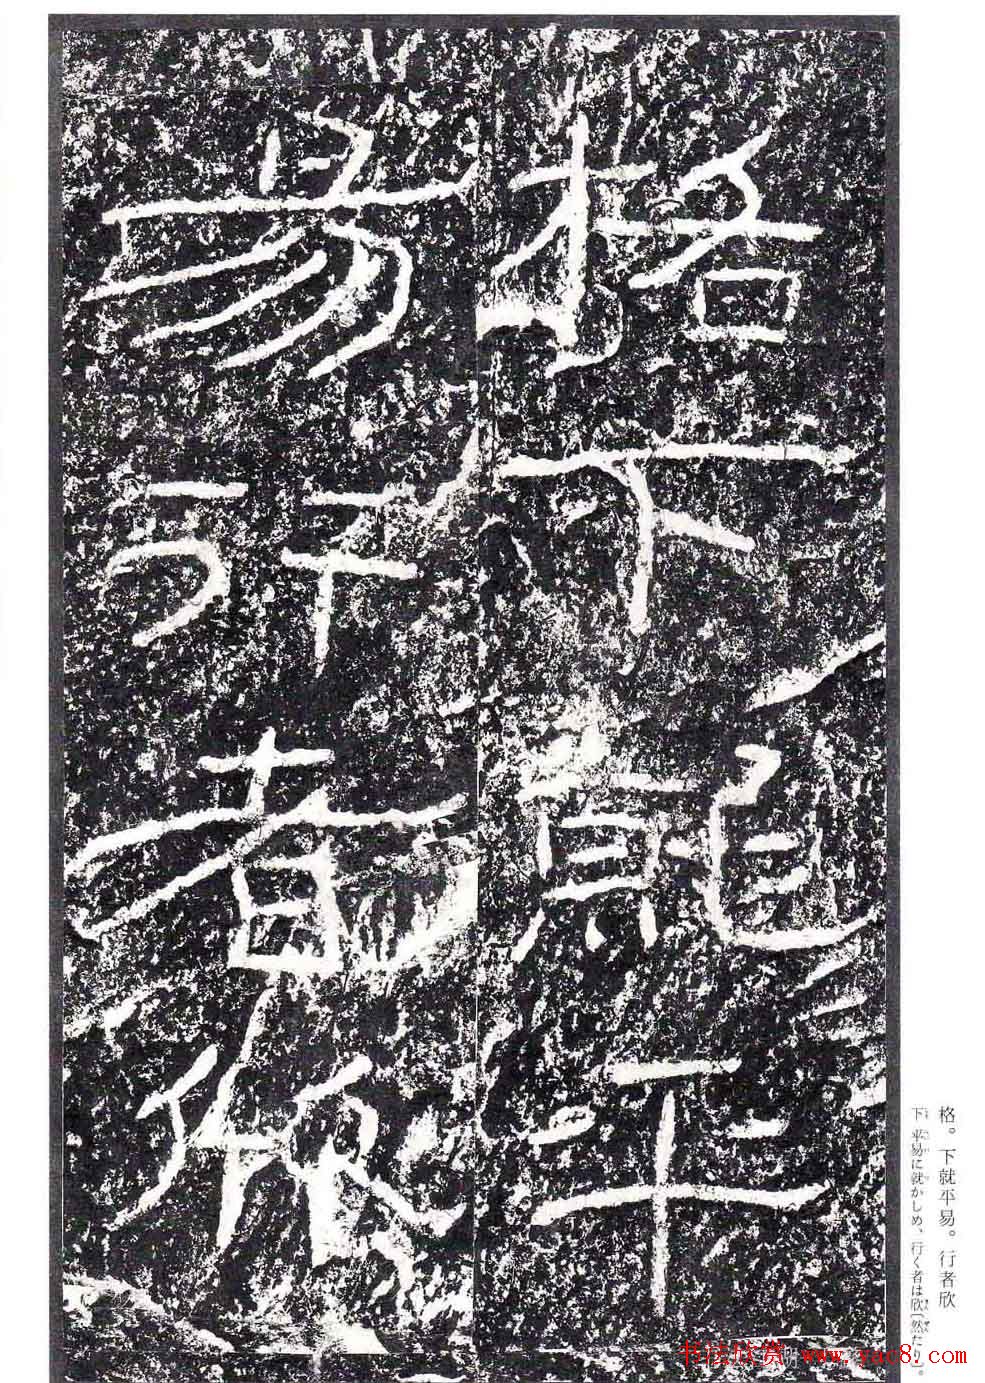 格下就平
易行者欣
格。下就平易。行者欣
下平易に就かしめ、行く者は欣〔然たり〕。
书法欣赏 www.yac8.com